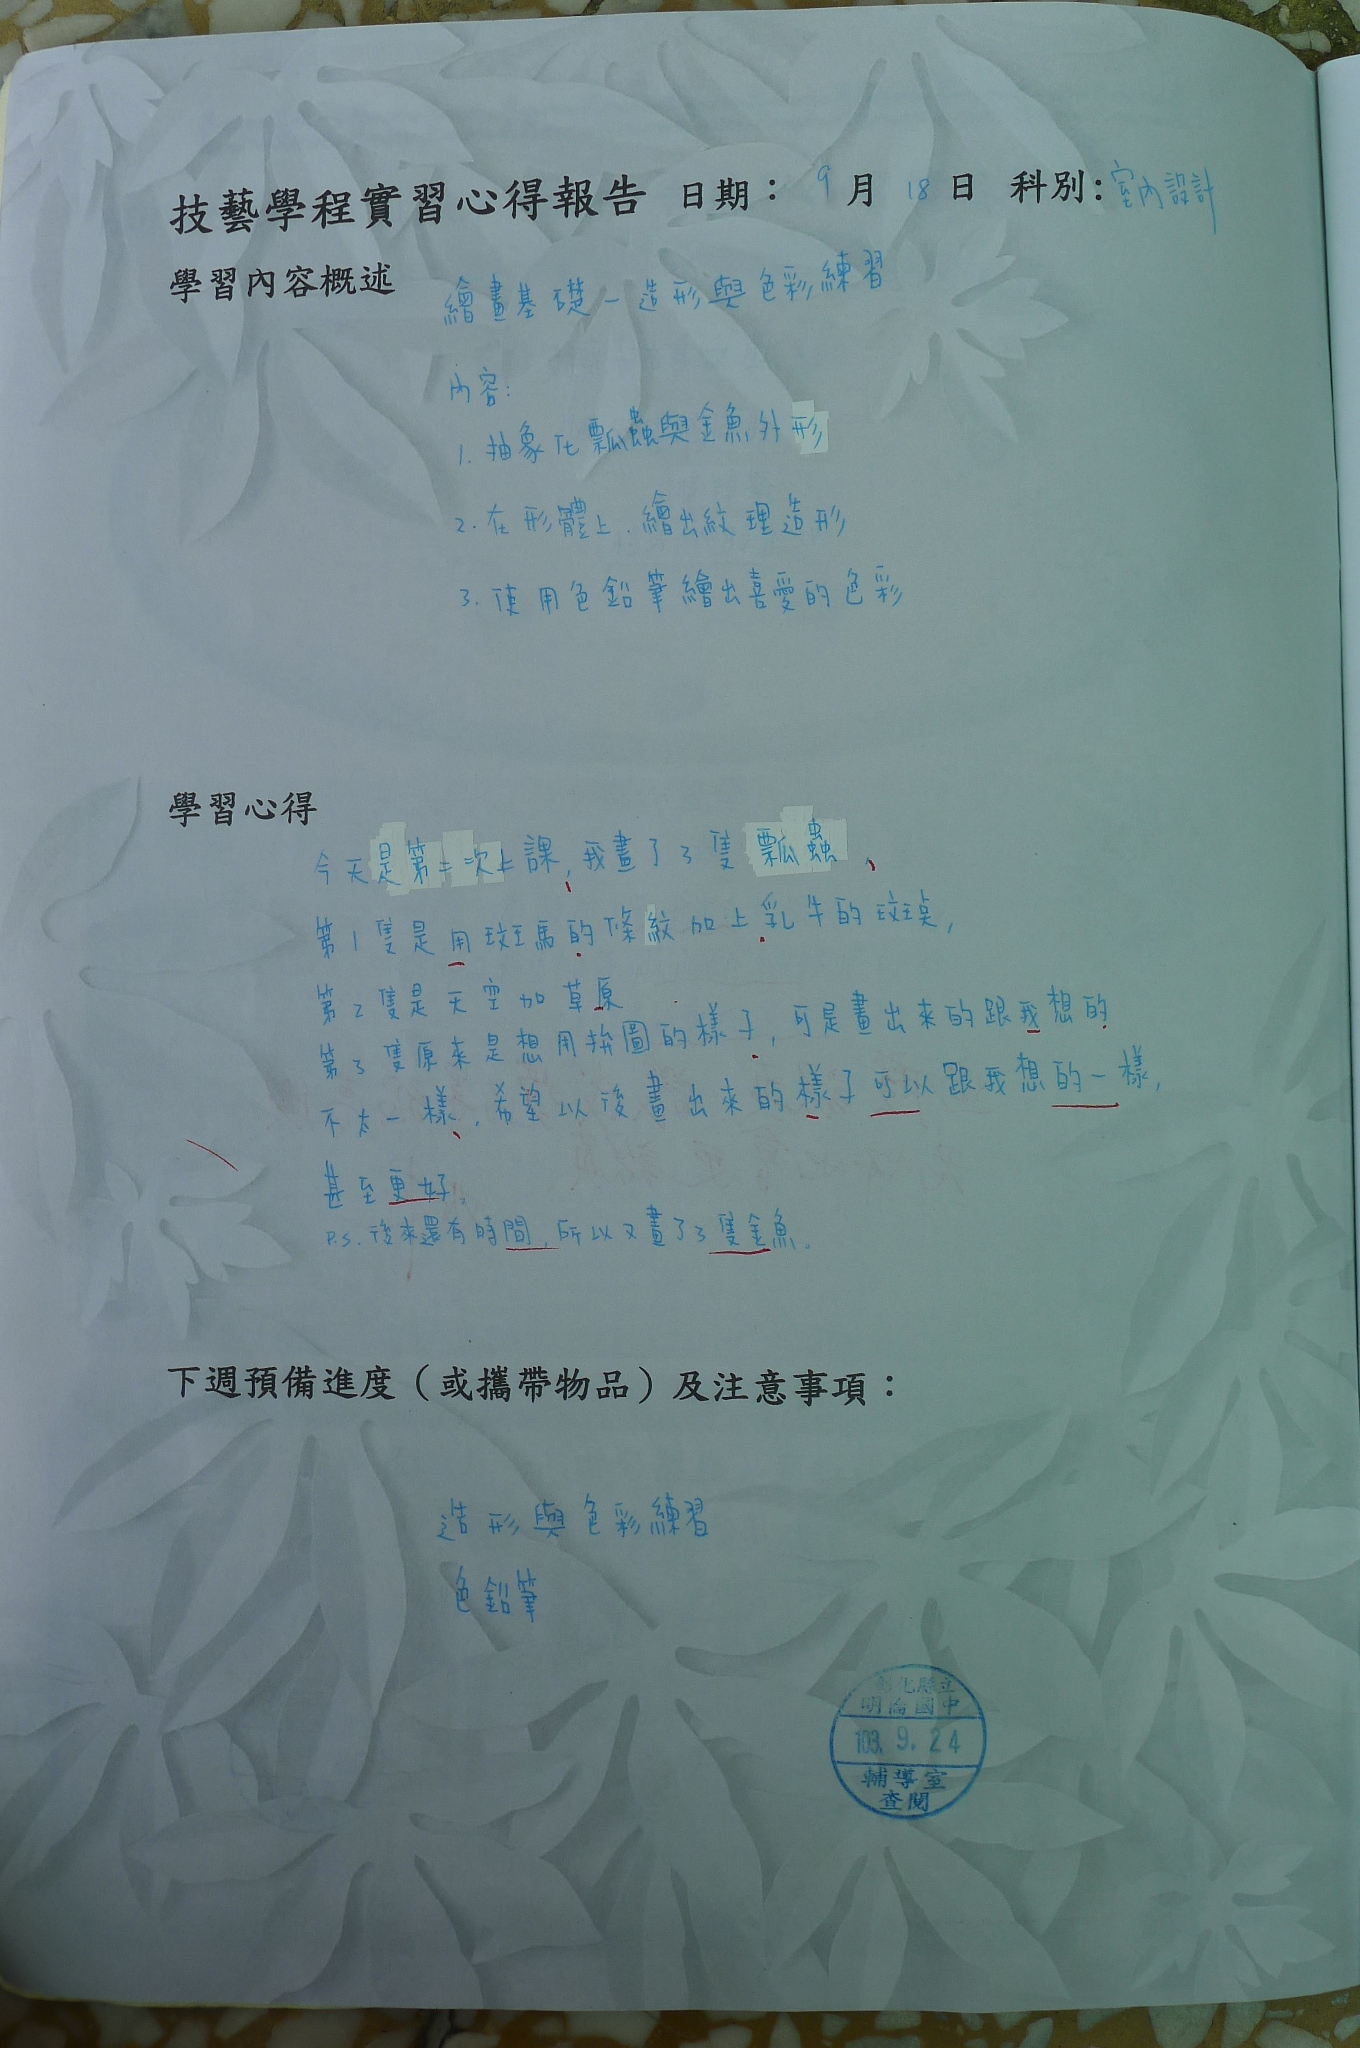 技藝學程實習心得報告 日期：9月18日 科別:室內設計
學習內容概述
繪畫基礎－造形與色彩練習
內容:
1. 抽象化瓢蟲與金魚外形
2. 在形體上.繪出紋理造形
3. 使用色鉛筆繪出喜愛的色彩
學習心得
今天是第二次上課,我畫了3隻瓢蟲,
第1隻是用斑馬的條紋加上乳牛的斑點,
第2隻是天空加草原
第3隻原來是想用拚圖的樣子,可是畫出來的跟我想的
不太一樣,希望以後畫出來的樣子可以跟我想的一樣,
甚至更好。
P.S.後來還有時間,所以又畫了3隻金魚。
下週預備進度（或攜帶物品）及注意事項：
造形與色彩練習
色鉛筆
彰化縣立
明倫國中
103.9.24
輔導室
查閱